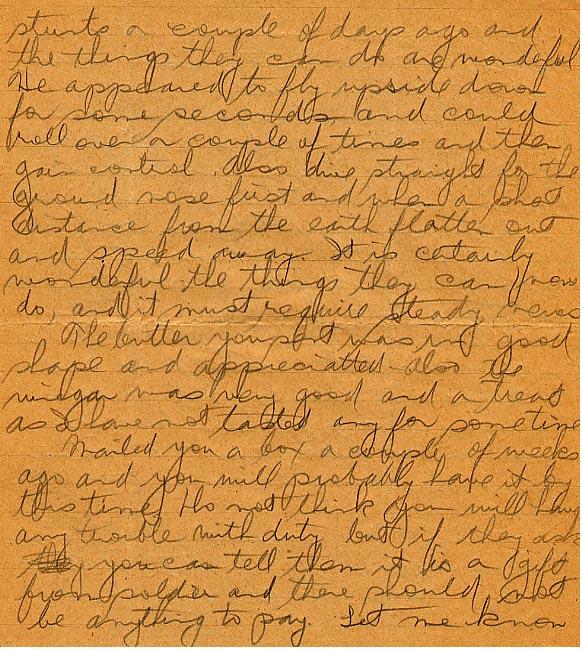 stunts a couple of days ago and
the things they can do are wonderful
He appeared to fly upside down
for some seconds and could
roll over a couple of times and then
gain control. Also dive straight for the
ground nose first and when a short
distance from the earth flatten out
and speed away. It is certainly
wonderful the things they can now
do, and it must require steady nerves
The butter you sent was in good
shape and appreciated also the
vinegar was very good and a treat
as I have not tasted any for sometime
Mailed you a box a couple of weeks
ago and you will probably have it by
this time. Do not think you will have
any trouble with duty but if they ask
you can tell them it is a gift
from soldier and there should not
be anything to pay. Let me know